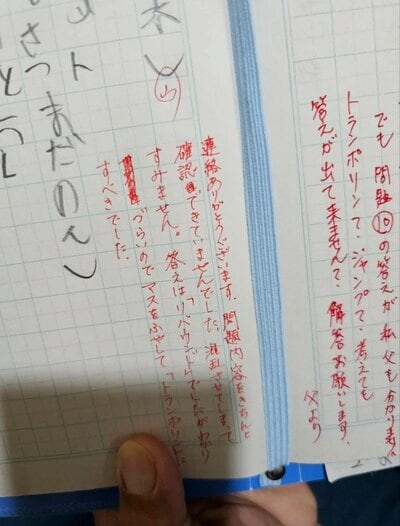 でも 問題⑩の答えが私父も分かりません
トランポリンて、ジャンプて、考えても
答えが出て来ませんて、解答お願いします。
父より
本し
山
まだのんし
連絡ありがとうございます。問題内容をきちんと
確認できていませんでした。混乱させてしまって
すみません。答えは「リバウンド」でしたがわかり
づらいのでマスをふやして「トランポリン」に
すべきでした。